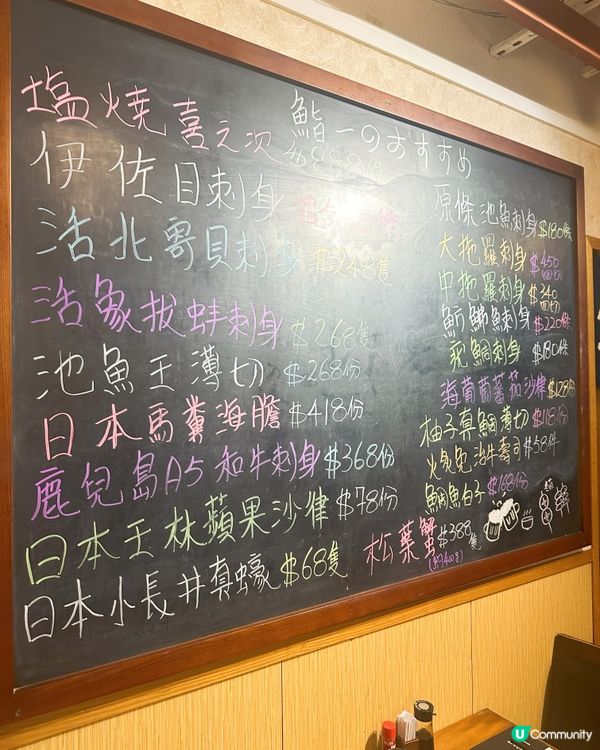 鮨一のおすすめ
塩燒喜之次 $888份
伊佐目刺身
活北寄貝刺身 $248隻
活象拔蚌刺身 $268隻
池魚王薄切 $268份
日本馬糞海膽 $418份
鹿兒島A5和牛刺身 $368份
日本王林蘋果沙律 $78份
日本小長井真蠔 $68隻
原條池魚刺身 $180條
大拖羅刺身 $450
中拖羅刺身 $340
魚刺身 $220條
鯛刺身 $180條
海葡萄蕃茄沙律 $128份
柚子真鯛薄切 $118份
火炙 牛壽司 $58件
鯛魚白子 $168份
松葉蟹 $388隻
U Community